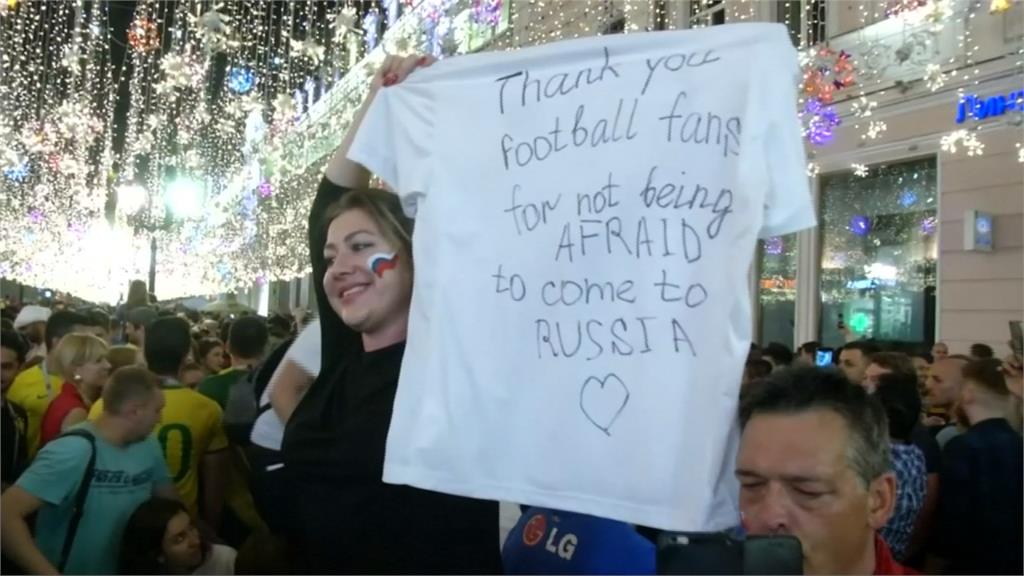 Thank you
football fans
for not being
AFRAID
to come to
RUSSIA
LG